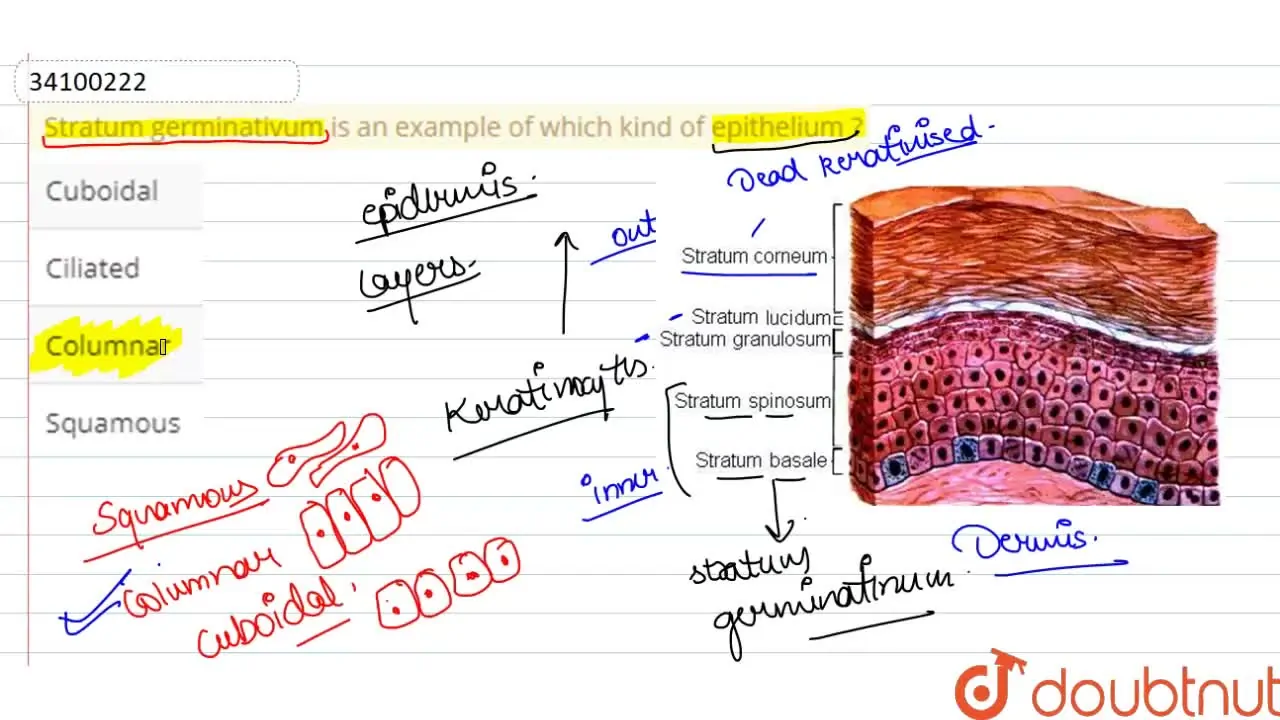 34100222
Stratum germinativum is an example of which kind of epithelium ?
Cuboidal
Ciliated
Columnar
Squamous
epidermis.
Layers.
Keratinocytes.
out
inner
Dead Keratinised.
Stratum corneum
Stratum lucidum
Stratum granulosum
Stratum spinosum
Stratum basale
stratum
germinatinum
Dermis.
Squamous
Columnar
Cuboidal
doubtnut